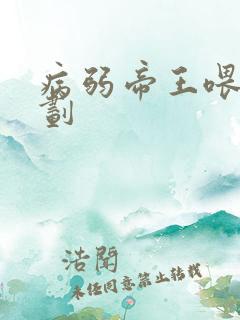 病弱帝王喂
劃
浩聞
未经同意禁止转载